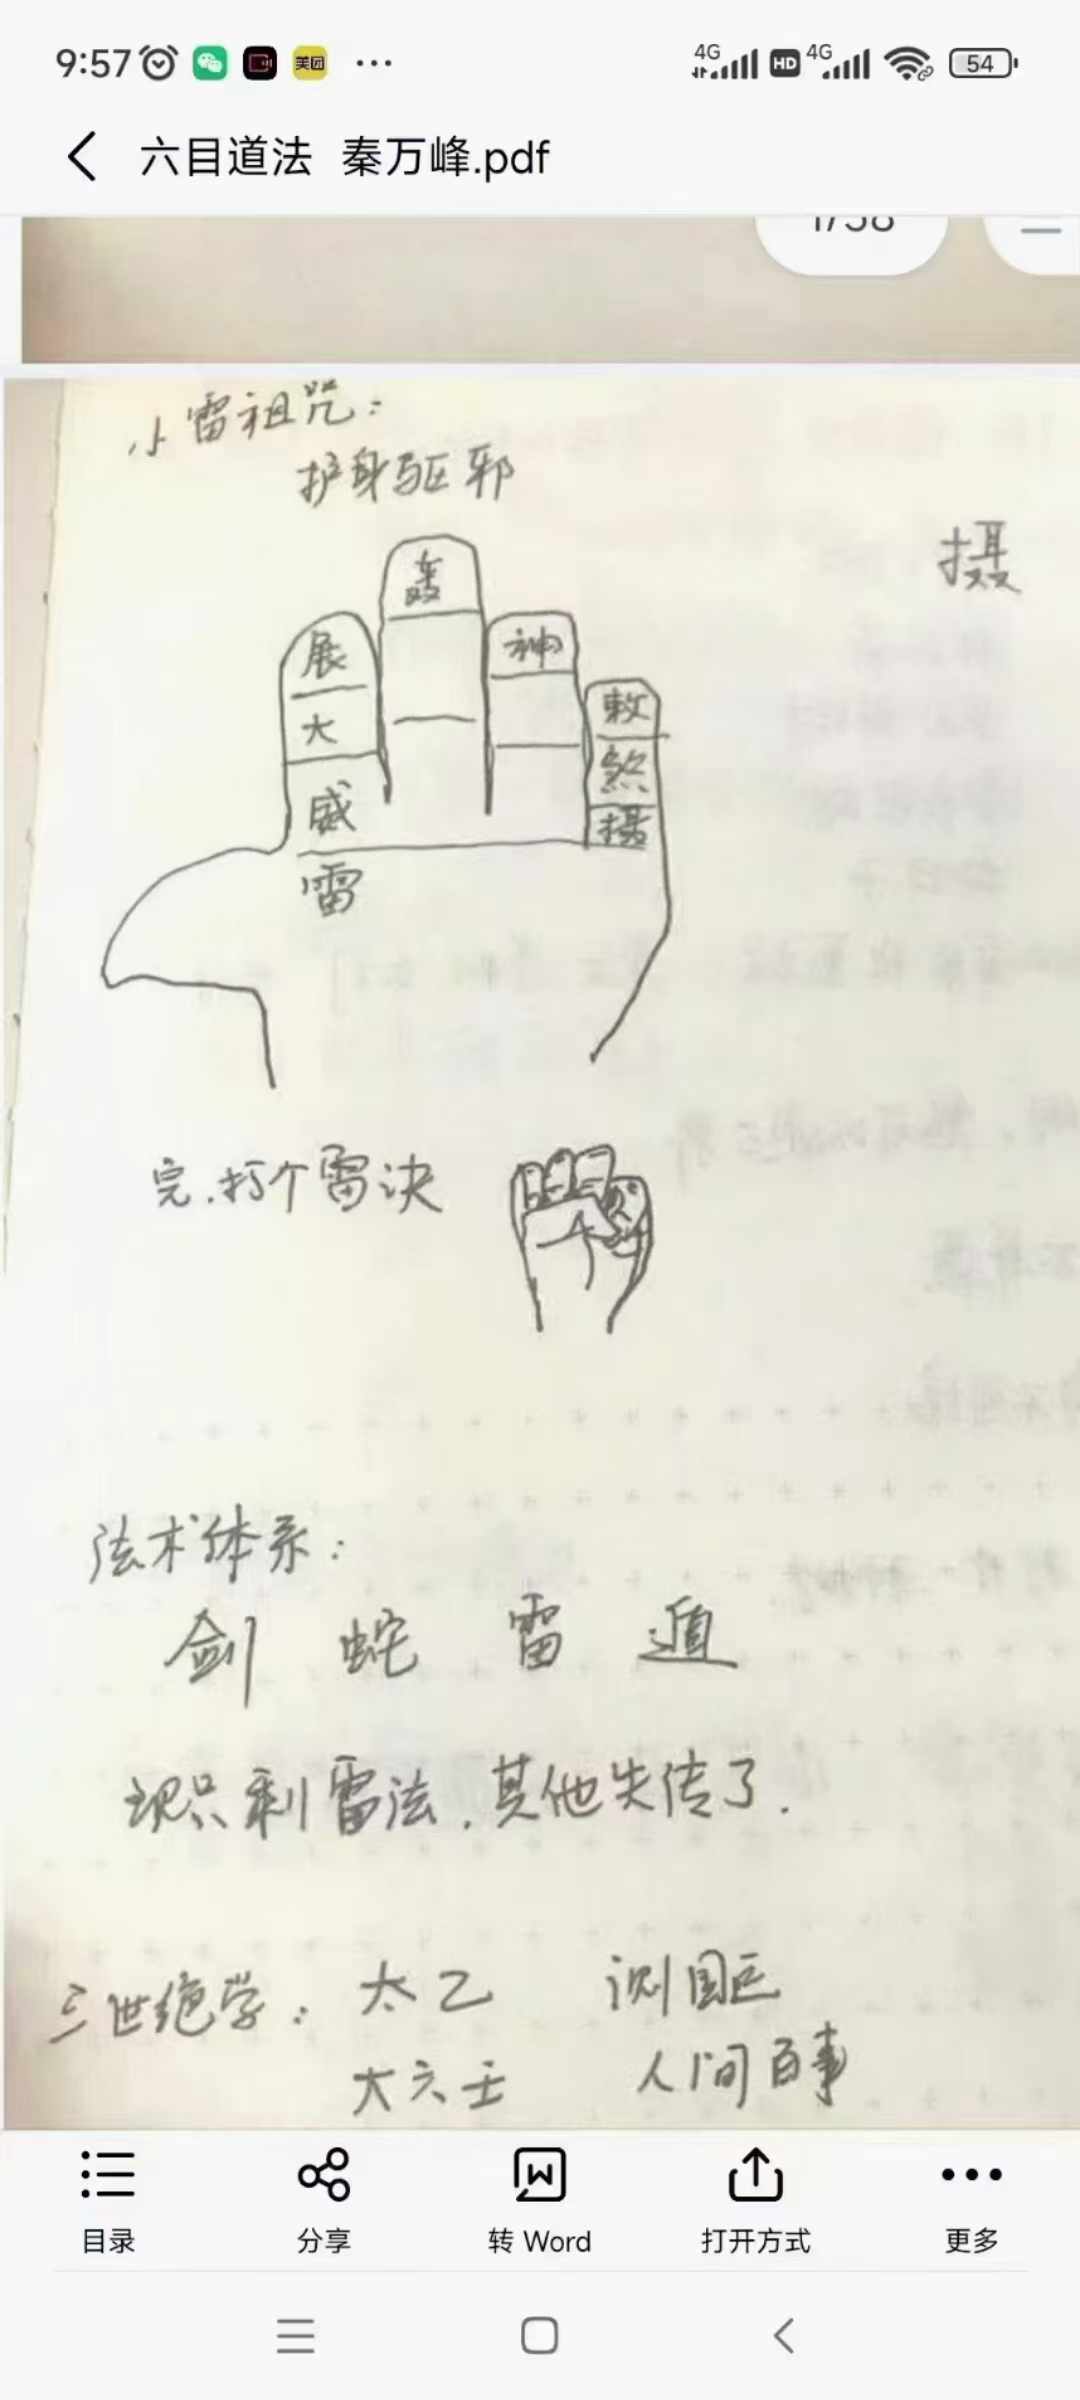 9:57 美团 ... 4G HD 4G 54
六目道法 秦万峰.pdf
1/58
小雷祖咒:
护身驱邪
摄
轰
展 神
大 敕
煞
威 摄
雷
完.打个雷决
法术体系:
剑 蛇 雷 遁
现只剩雷法.其他失传了.
三世绝学: 太乙 测国运
大六壬 人间百事
目录 分享 转 Word 打开方式 更多